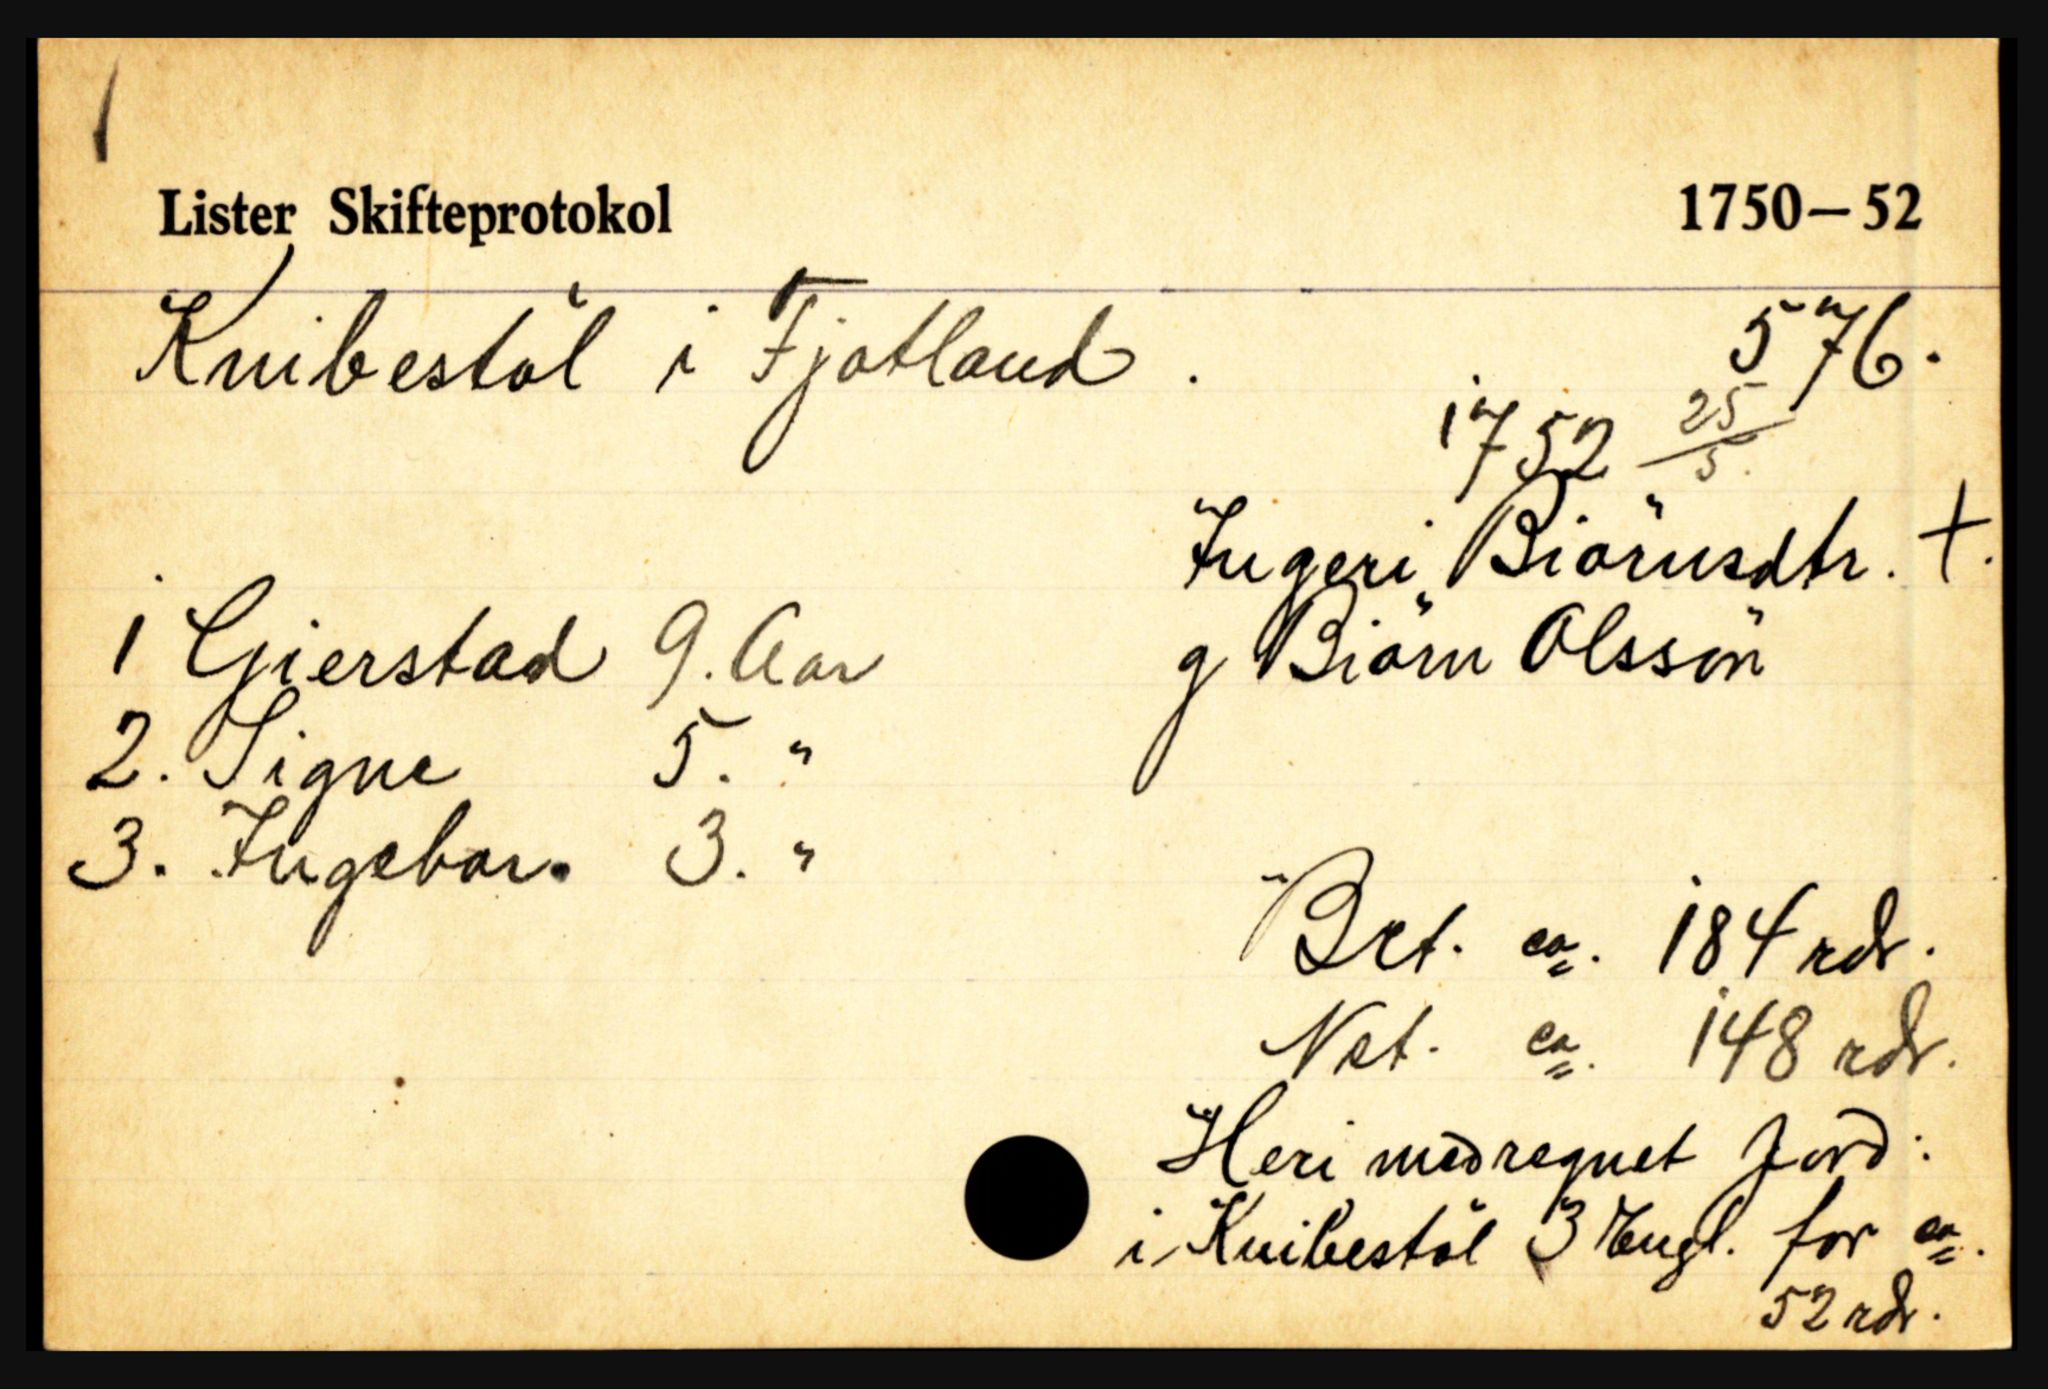 Lister Skifteprotokol 1750–52
Knibestöl i Fjotland. 576.
1752 25/5.
Ingeri Biörnsdtr. †.
g Biörn Olssön
1 Gierstad 9. Aar
2. Signe 5. "
3. Ingebor. 3. "
Brt. ca. 184 rdr.
Net. ca. 148 rdr.
Heri medregnet Jord:
i Knibestöl 3 Engl. for ca.
52 rdr.